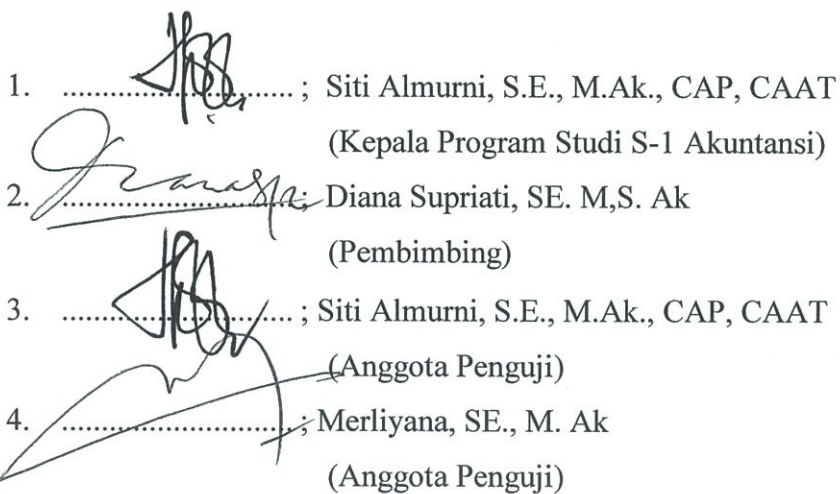 1. ............................... ; Siti Almurni, S.E., M.Ak., CAP, CAAT
(Kepala Program Studi S-1 Akuntansi)
2. ...............................; Diana Supriati, SE. M,S. Ak
(Pembimbing)
3. ............................... ; Siti Almurni, S.E., M.Ak., CAP, CAAT
(Anggota Penguji)
4. ...............................; Merliyana, SE., M. Ak
(Anggota Penguji)